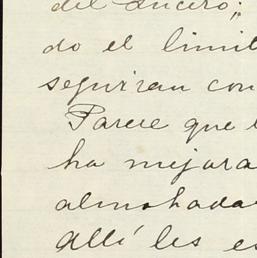 del Lucero;
do el limit
seguiran con
Parece que l
ha mejora
almohada
Allí les es